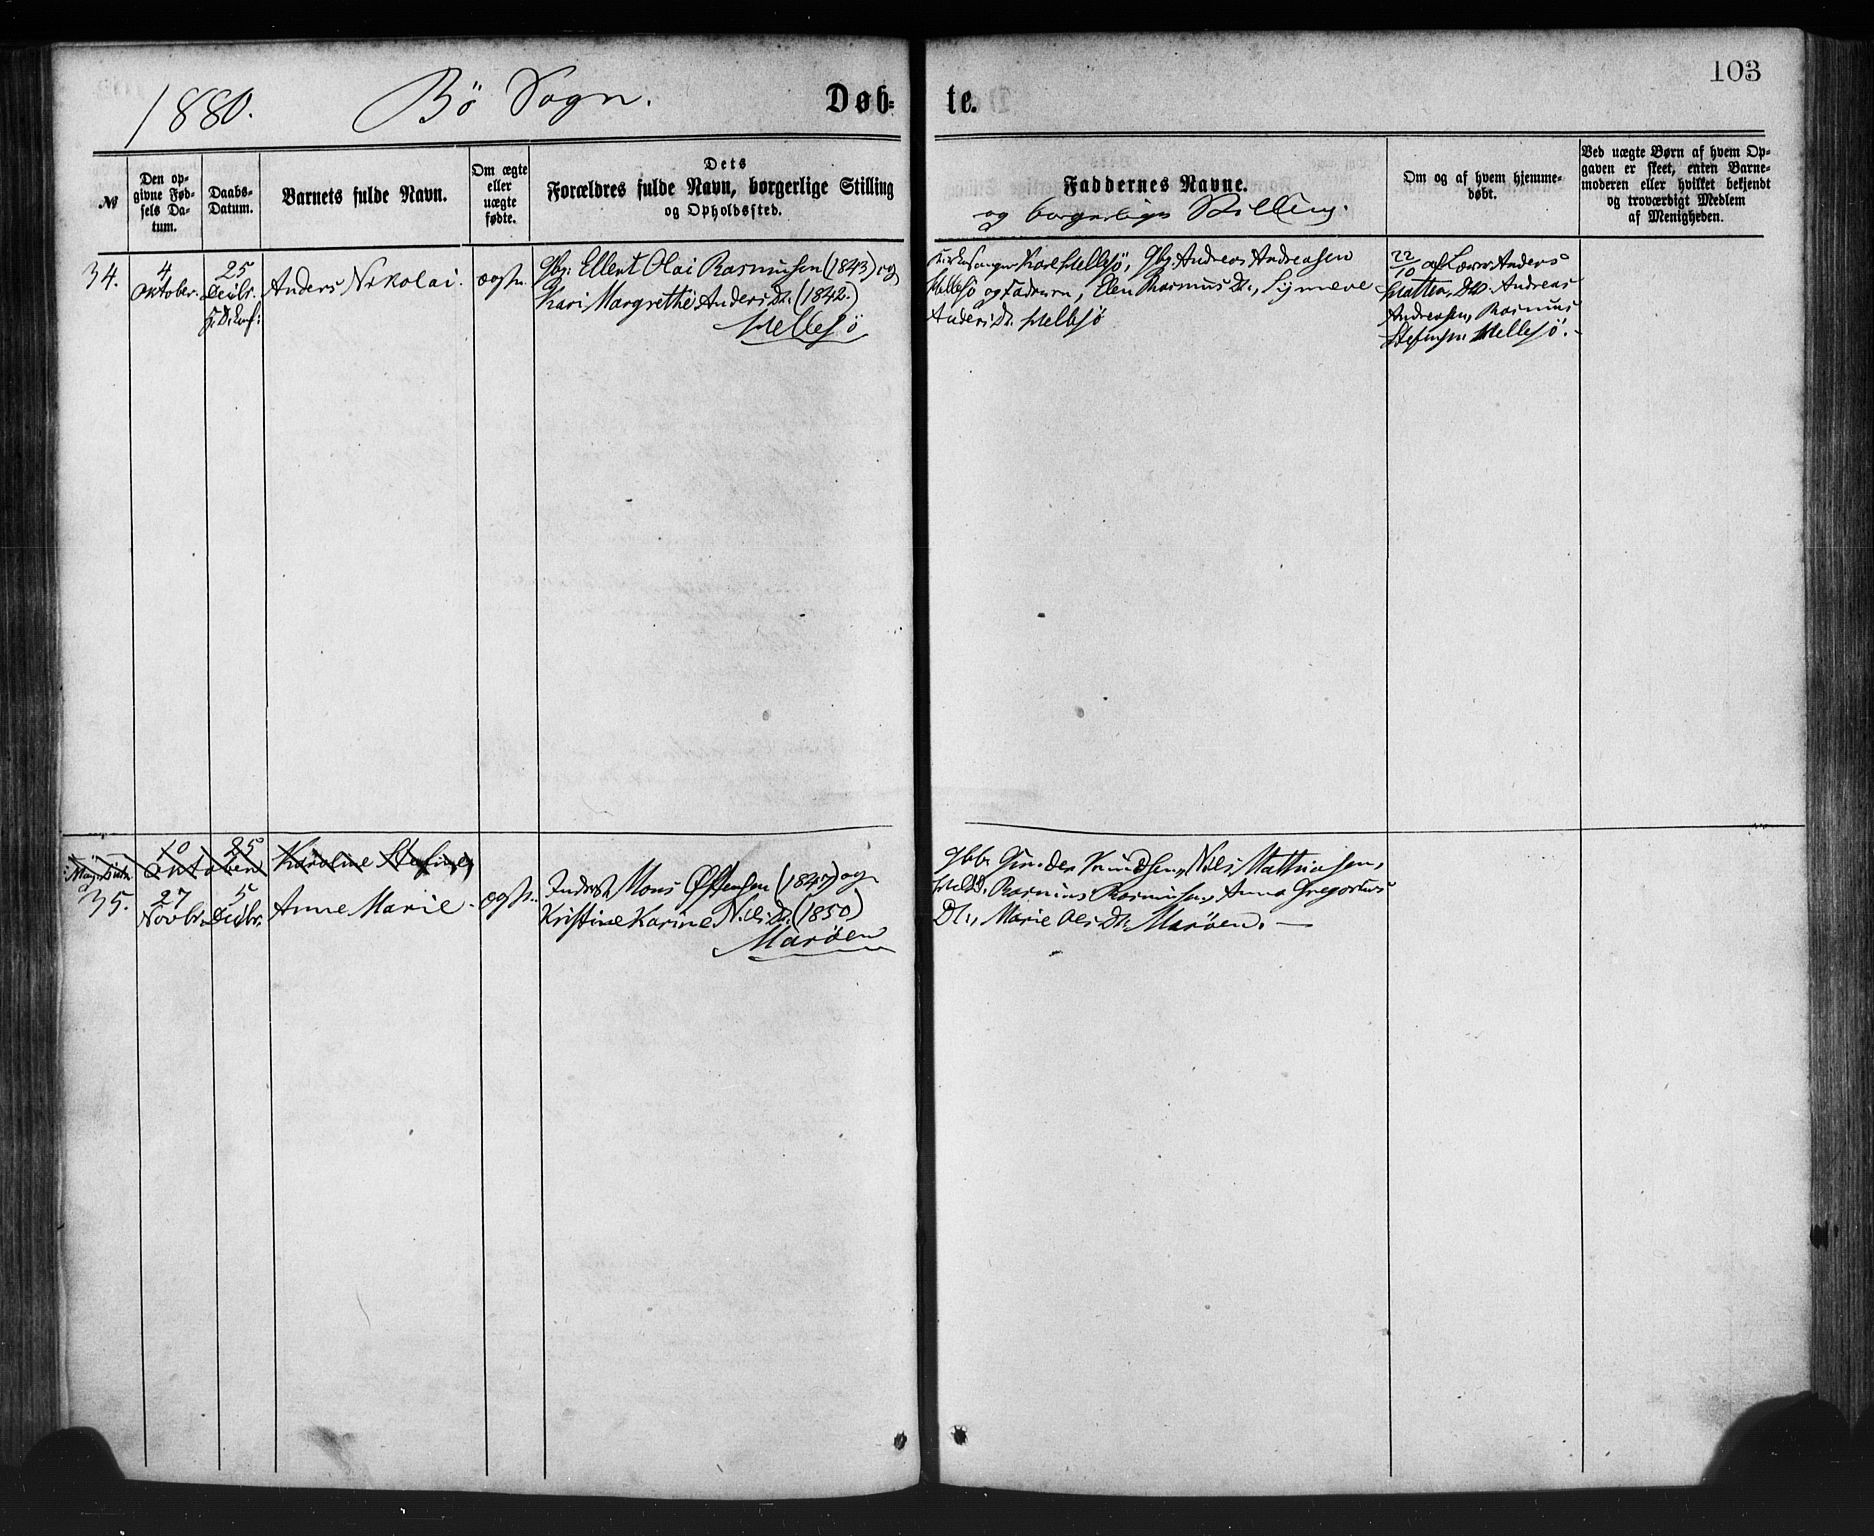 103
1880. Bö Sogn. Døb= te.
№
Den op-
givne Fød-
sels Da-
tum.
Daabs-
Datum.
Barnets fulde Navn.
Om ægte
eller
uægte
fødte.
Dets
Forældres fulde Navn, borgerlige Stilling
og Opholdssted.
Faddernes Navne.
og borgerlige Stilling.
Om og af hvem hjemme-
døbt.
Ved uægte Børn af hvem Op-
gaven er skeet, enten Barne-
moderen eller hvilket bekjendt
og troværdigt Medlem
af Menigheden.
34.
4
Oktober.
25
Decbr.
Anders Nikolai.
ægte.
Gbr: Ellert Olai Rasmusen (1843) og
Kari Margrethe Anders Dr. (1842.)
Hellesö
Kirkesanger Karl Hellesö, Gbr. Andreas Andreasen
Hellesö og Faderen, Elen Rasmus Dr., Synneve
Anders Dr. Hellesö
22/10 af Lærer Anders
Andreas
Andreasen, Rasmus
Hellesö.
10
Oktober
25
Karoline Stefine
35.
27
Novbr.
5
Decbr.
Anne Marie.
ægte.
Inderst Mons Östensen (1847) og
Kristine Karine Nils Dr. (1850)
Maröen
Gbr. Gunder Knudsen, Nils Mathiasen,
Rasmus Rasmusen, Anna Gregorius
Dr., Marie Ols Dr. Maröen.